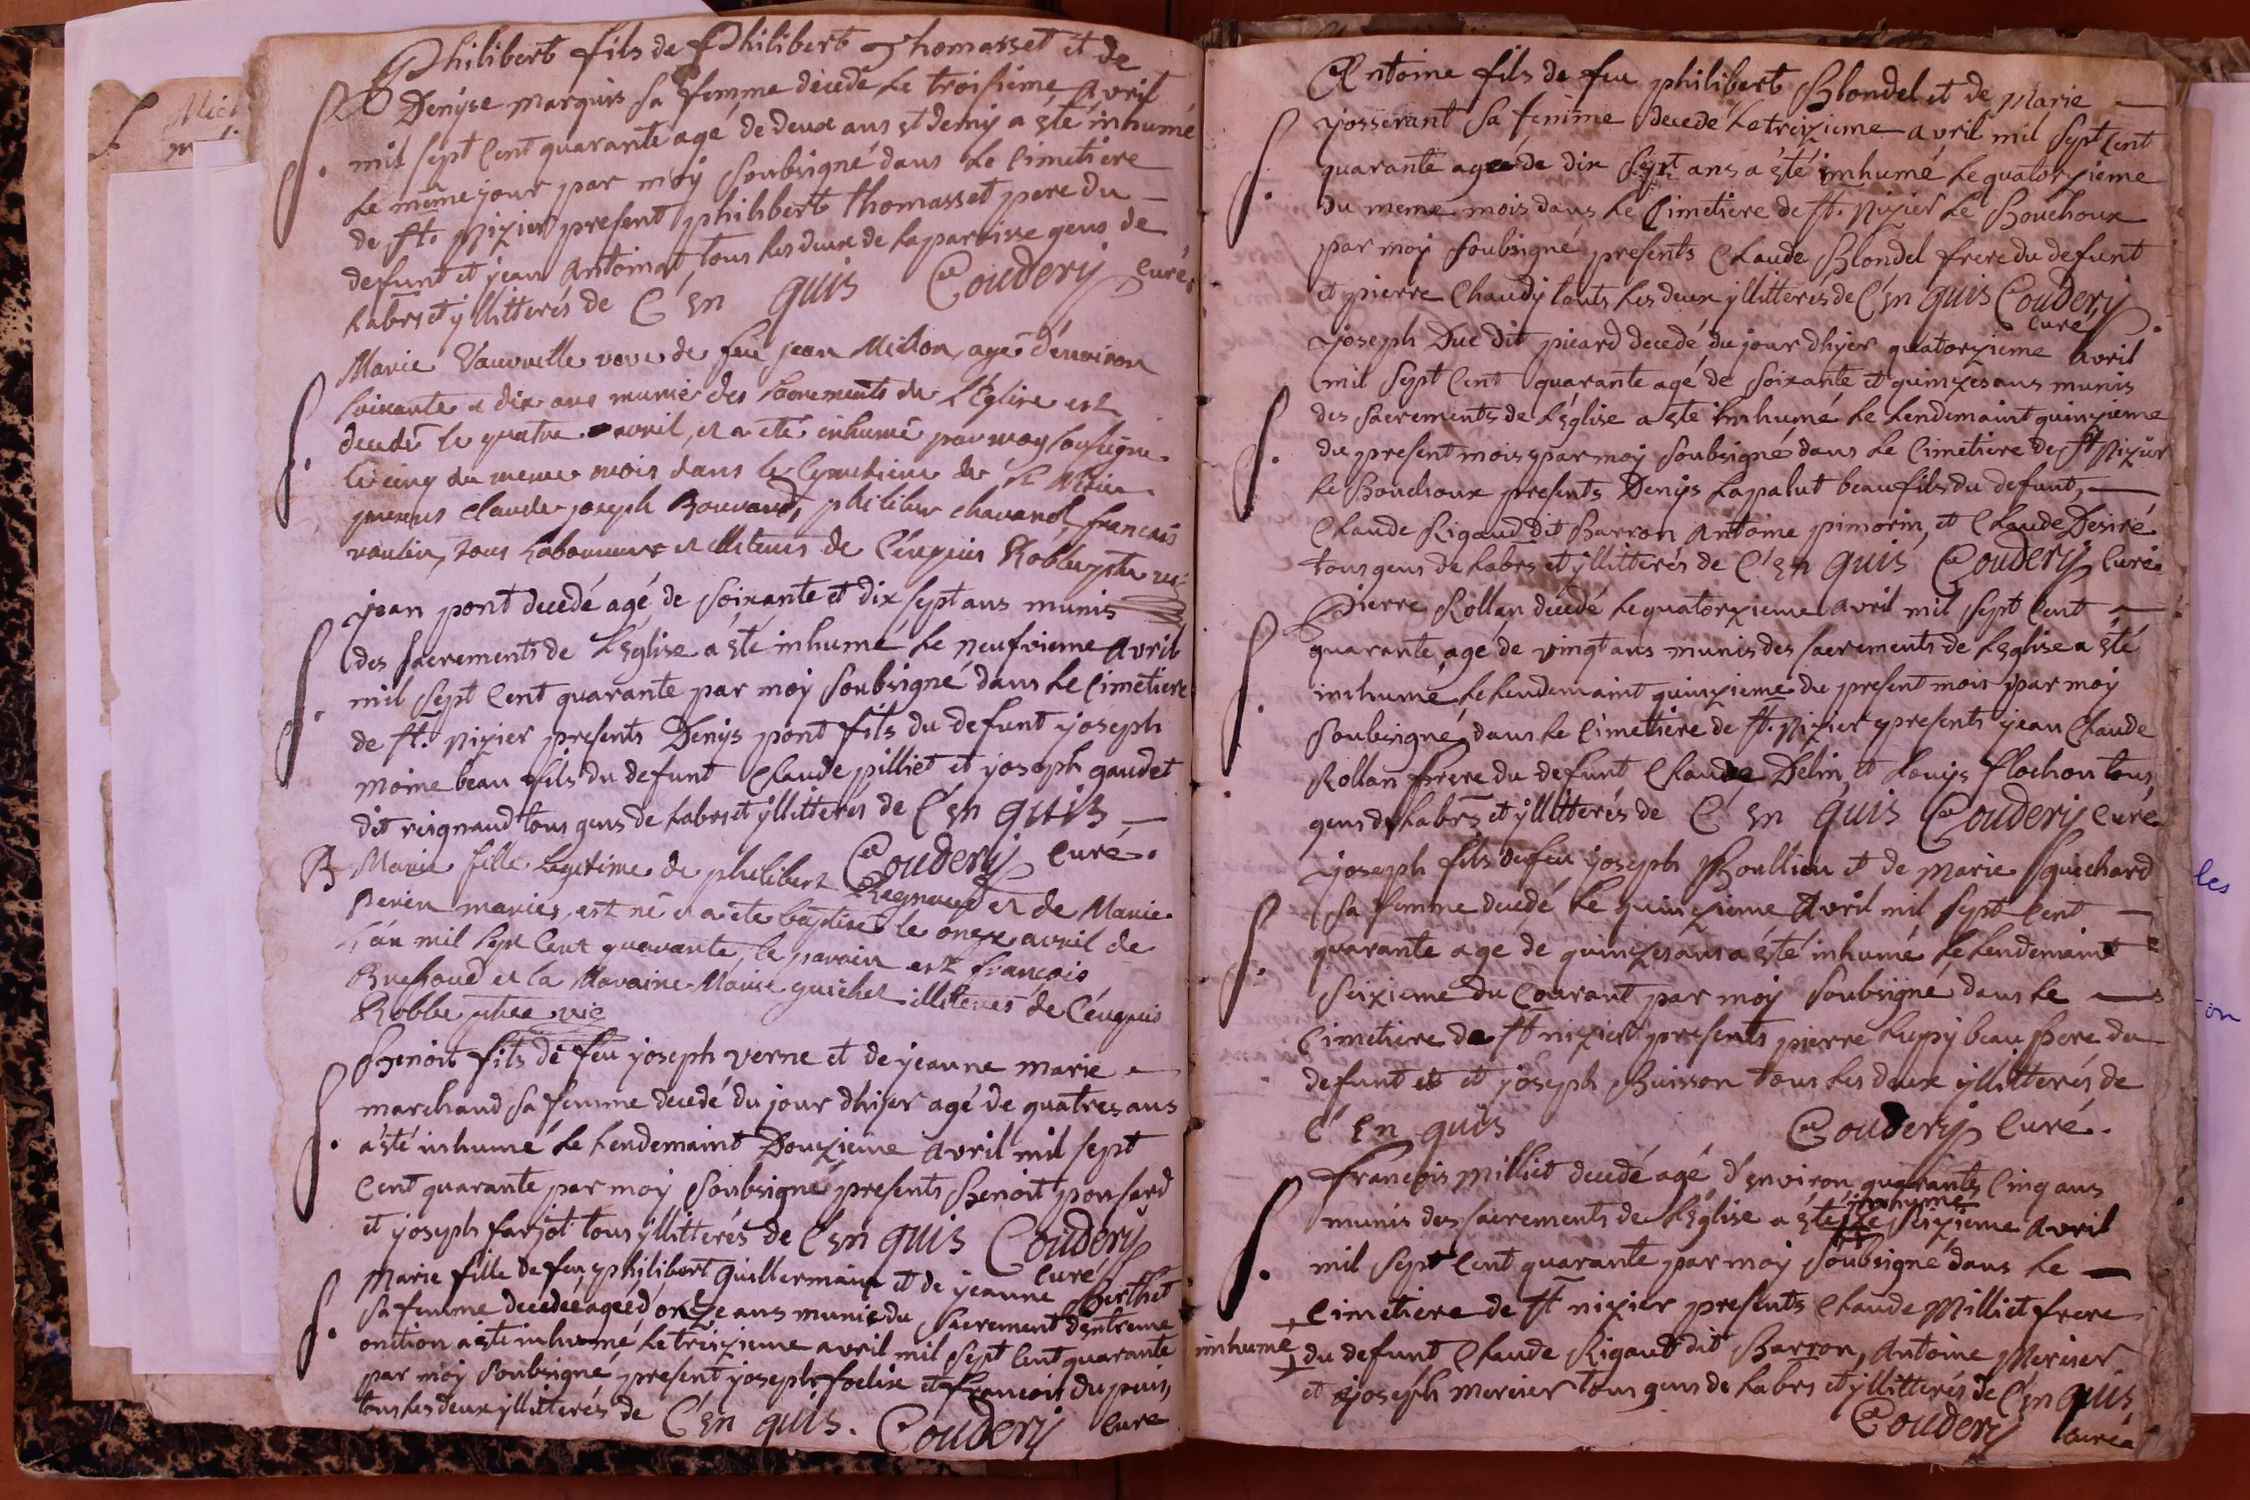 Philibert fils de Philibert Thomasset et de
Denyse marquis sa femme décédé le troisieme Avril
mil sept cent quarante agé de deux ans et demy a esté inhumé
le même jour par moy soubsigné dans le cimetiere
de St. Nizier present philibert thomasset pere du
defunt et jean Antoinat tous les deux de la paroisse gens de
labrs et yllitterés de C En quis Coudery curé.
Marie veuve de feu jean Millon, agé d'environ
soixante et dix ans munie des sacrements de L'Eglise est
decedé le quatre avril, et a eté inhumé par moy soussigné
le cinq du meme mois dans le Cymetiere de St Nizier
presens Claude joseph Bouvard, philiber chavanol, francois
voulin, tous laboureurs et illiterés de Cénquis Robbe ptre vic
jean pont decedé agé de soixante et dix sept ans munis
des sacrements de L'Eglise a esté inhumé le neufvieme Avril
mil sept cent quarante par moy soubsigné dans le cimetiere
de St. nizier presents Denys pont fils du defunt joseph
moine beau fils du defunt Claude pilliet et joseph gaudet
dit reignaud tous gens de labrs et yllitterés de C En quis
Coudery curé.
B Marie fille legitime de philibert Regnaud et de Marie
Perier mariés est né et a eté baptisé le onze avril de
L'an mil sept cent quarante, le parain est françois
et la Maraine Marie guichet illiterés de Cénquis
Robbe ptre vic
Benoit fils de feu joseph verne et de jeanne marie
marchand sa femme decedé du jour dhyer agé de quatres ans
a esté inhumé le lendemaint Douzieme avril mil sept
cent quarante par moy soubsigné presents Benoit ponsard
et joseph farjot tous yllitterés de C En quis Coudery
curé
Marie fille de feu philibert Guillermain et de jeanne Berthet
sa femme decedée agée d'onze ans munie du sacrement d'extreme
onction a esté inhumé le treizieme avril mil sept cent quarante
par moy soubsigné present joseph foelix et francois dupuis,
tous les deux yllitterés de C En quis. Coudery curé
Antoine fils de feu philibert Blondel et de Marie
josserant sa femme decedé le treizieme avril mil sept cent
quarante agé de dix sept ans a esté inhumé le quatorzieme
du meme mois dans le cimetiere de St. Nizier le Bouchoux
par moy soubsigné presents Claude Blondel frere du defunt
et pierre Chaudy touts les deux yllitterés de C En quis Coudery
curé
joseph Duc dit picard decedé du jour dhyer quatorzieme avril
mil sept cent quarante agé de soixante et quinzes ans munis
des sacrements de L'Eglise a esté inhumé le lendemaint quinzieme
du present mois par moy soubsigné dans le cimetiere de St Nizier
le Bouchoux presents Denys Lapalut beau fils du defunt,
Claude Rigaud dit Barron Antoine pimorin, et Claude Desiré
tous gens de labrs et yllitterés de C En quis Coudery curé
Pierre Rollan decedé le quatorzieme avril mil sept cent
quarante agé de vingt ans munis des sacrements de L'Eglise a esté
inhumé, le lendemaint quinzieme du present mois par moy
soubsigné, dans le cimetiere de St. Nizier presents jean Claude
Rollan frere du defunt Claude Delin, et Louys flochon tous
gens de labrs et yllitterés de C En quis Coudery curé
joseph fils de feu joseph Boullieu et de Marie Guichard
sa femme decedé le quinzieme Avril mil sept cent
quarante agé de quinzes ans a esté inhumé le lendemaint
seizieme du courant par moy soubsigné dans le
cimetiere de St nizier presents pierre Lupy beau pere du
defunt et et joseph Buisson tous les deux yllitterés de
C En quis Coudery curé.
francois Milliet decedé agé d'environ quarantes cinq ans
munis des sacrements de L'Eglise a esté inhumé le seizieme avril
mil sept cent quarante par moy soubsigné dans le
cimetiere de St nizier presents Claude Milliet frere
inhumé du defunt Claude Rigaud dit Barron, Antoine Mercier
et joseph mercier tous gens de labrs et yllitterés de C En quis
Coudery curé
les
on